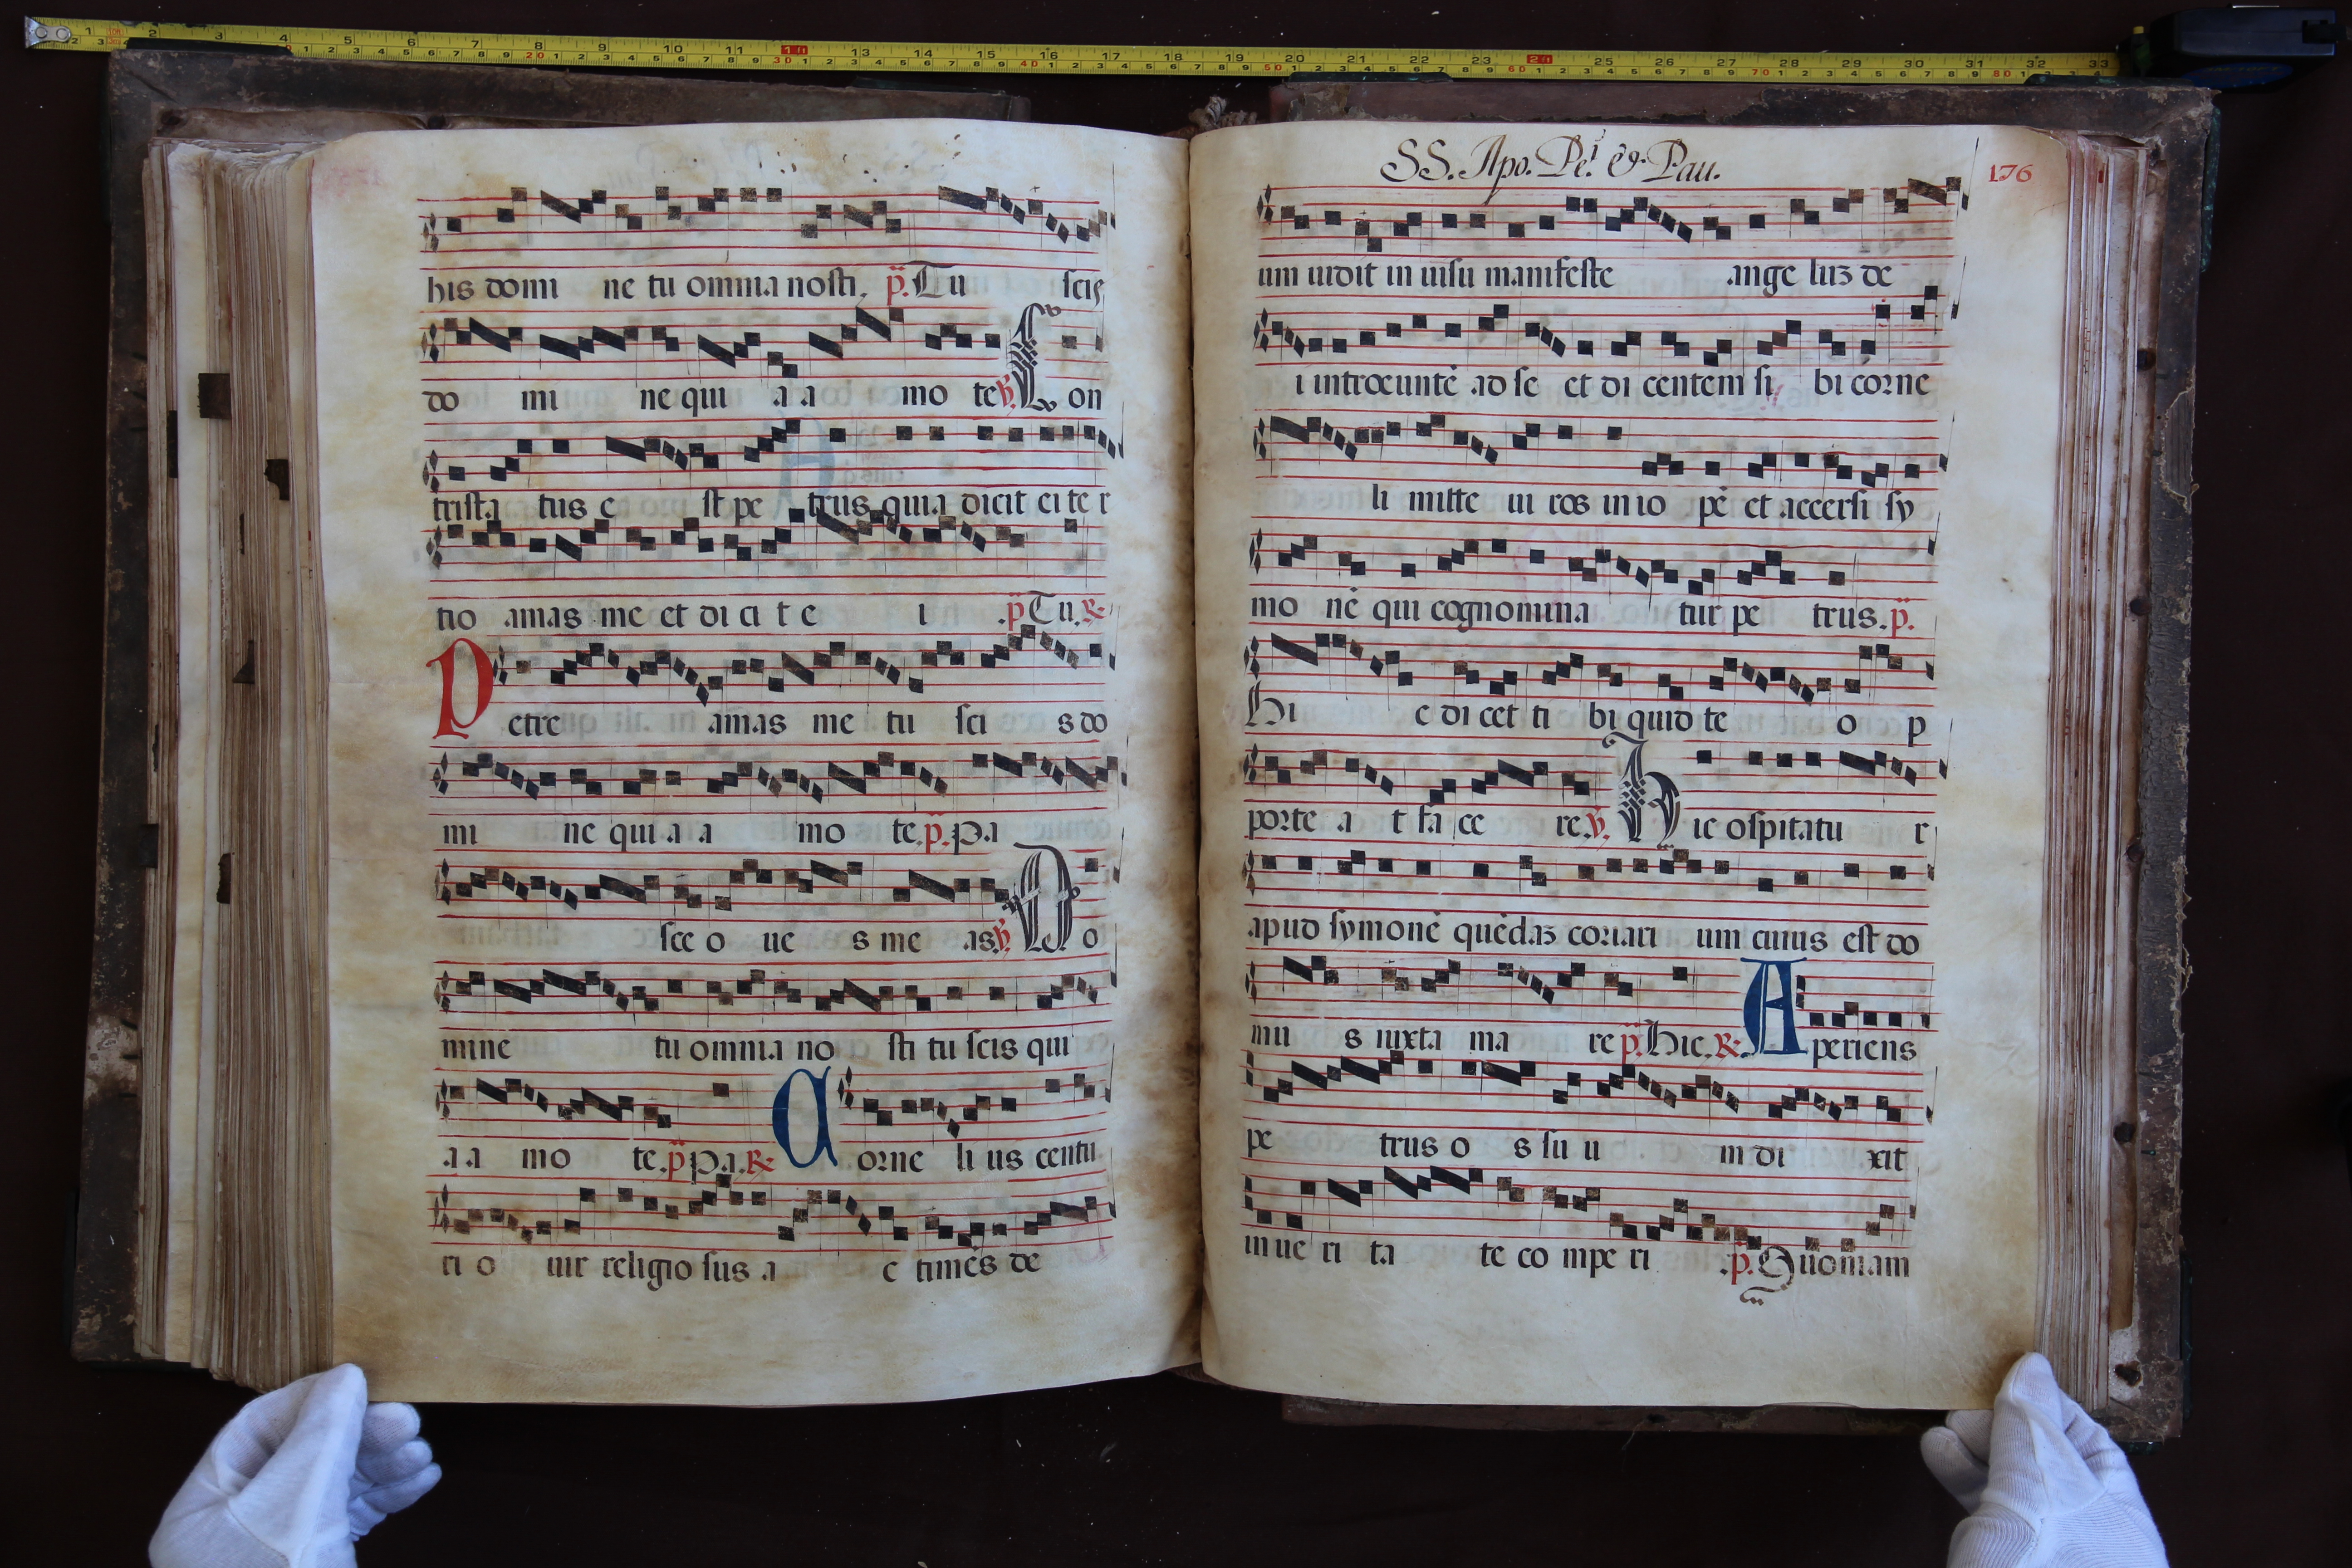 his domi ne tu omnia nosti. p. Tu scis
do mi ne qui a a mo te ℣. Con
trista tus e st pe trus quia dicit ei te r
tio amas me et di ci t e i .p Tu. ℟
Petre amas me tu sci s do
mi ne qui a a mo te. p. pa
sce o ue s me as ℣. Do
mine tu omnia no sti tu scis qui
a a mo te. p pa. ℟ Corne li us centu
ri o uir religio sus a c timēs de
SS. Apo. Pe.i & Pau.
176
um uidit in uisu manifeste ange luʒ de
i introeuntē ad se et di centem si bi corne
li mitte ui ros in io pē et accersi sy
mo nē qui cognomina tur pe trus. p.
Hi c di cet ti bi quid te o p
porte a t fa ce re. ℣. Hic ospitatu r
apud symonē quēdaʒ coriari um cuius est do
mu s iuxta ma re p. Hic. ℟. Aperiens
pe trus o s su u m di xit
in ue ri ta te co mpe ri .p. Quoniam